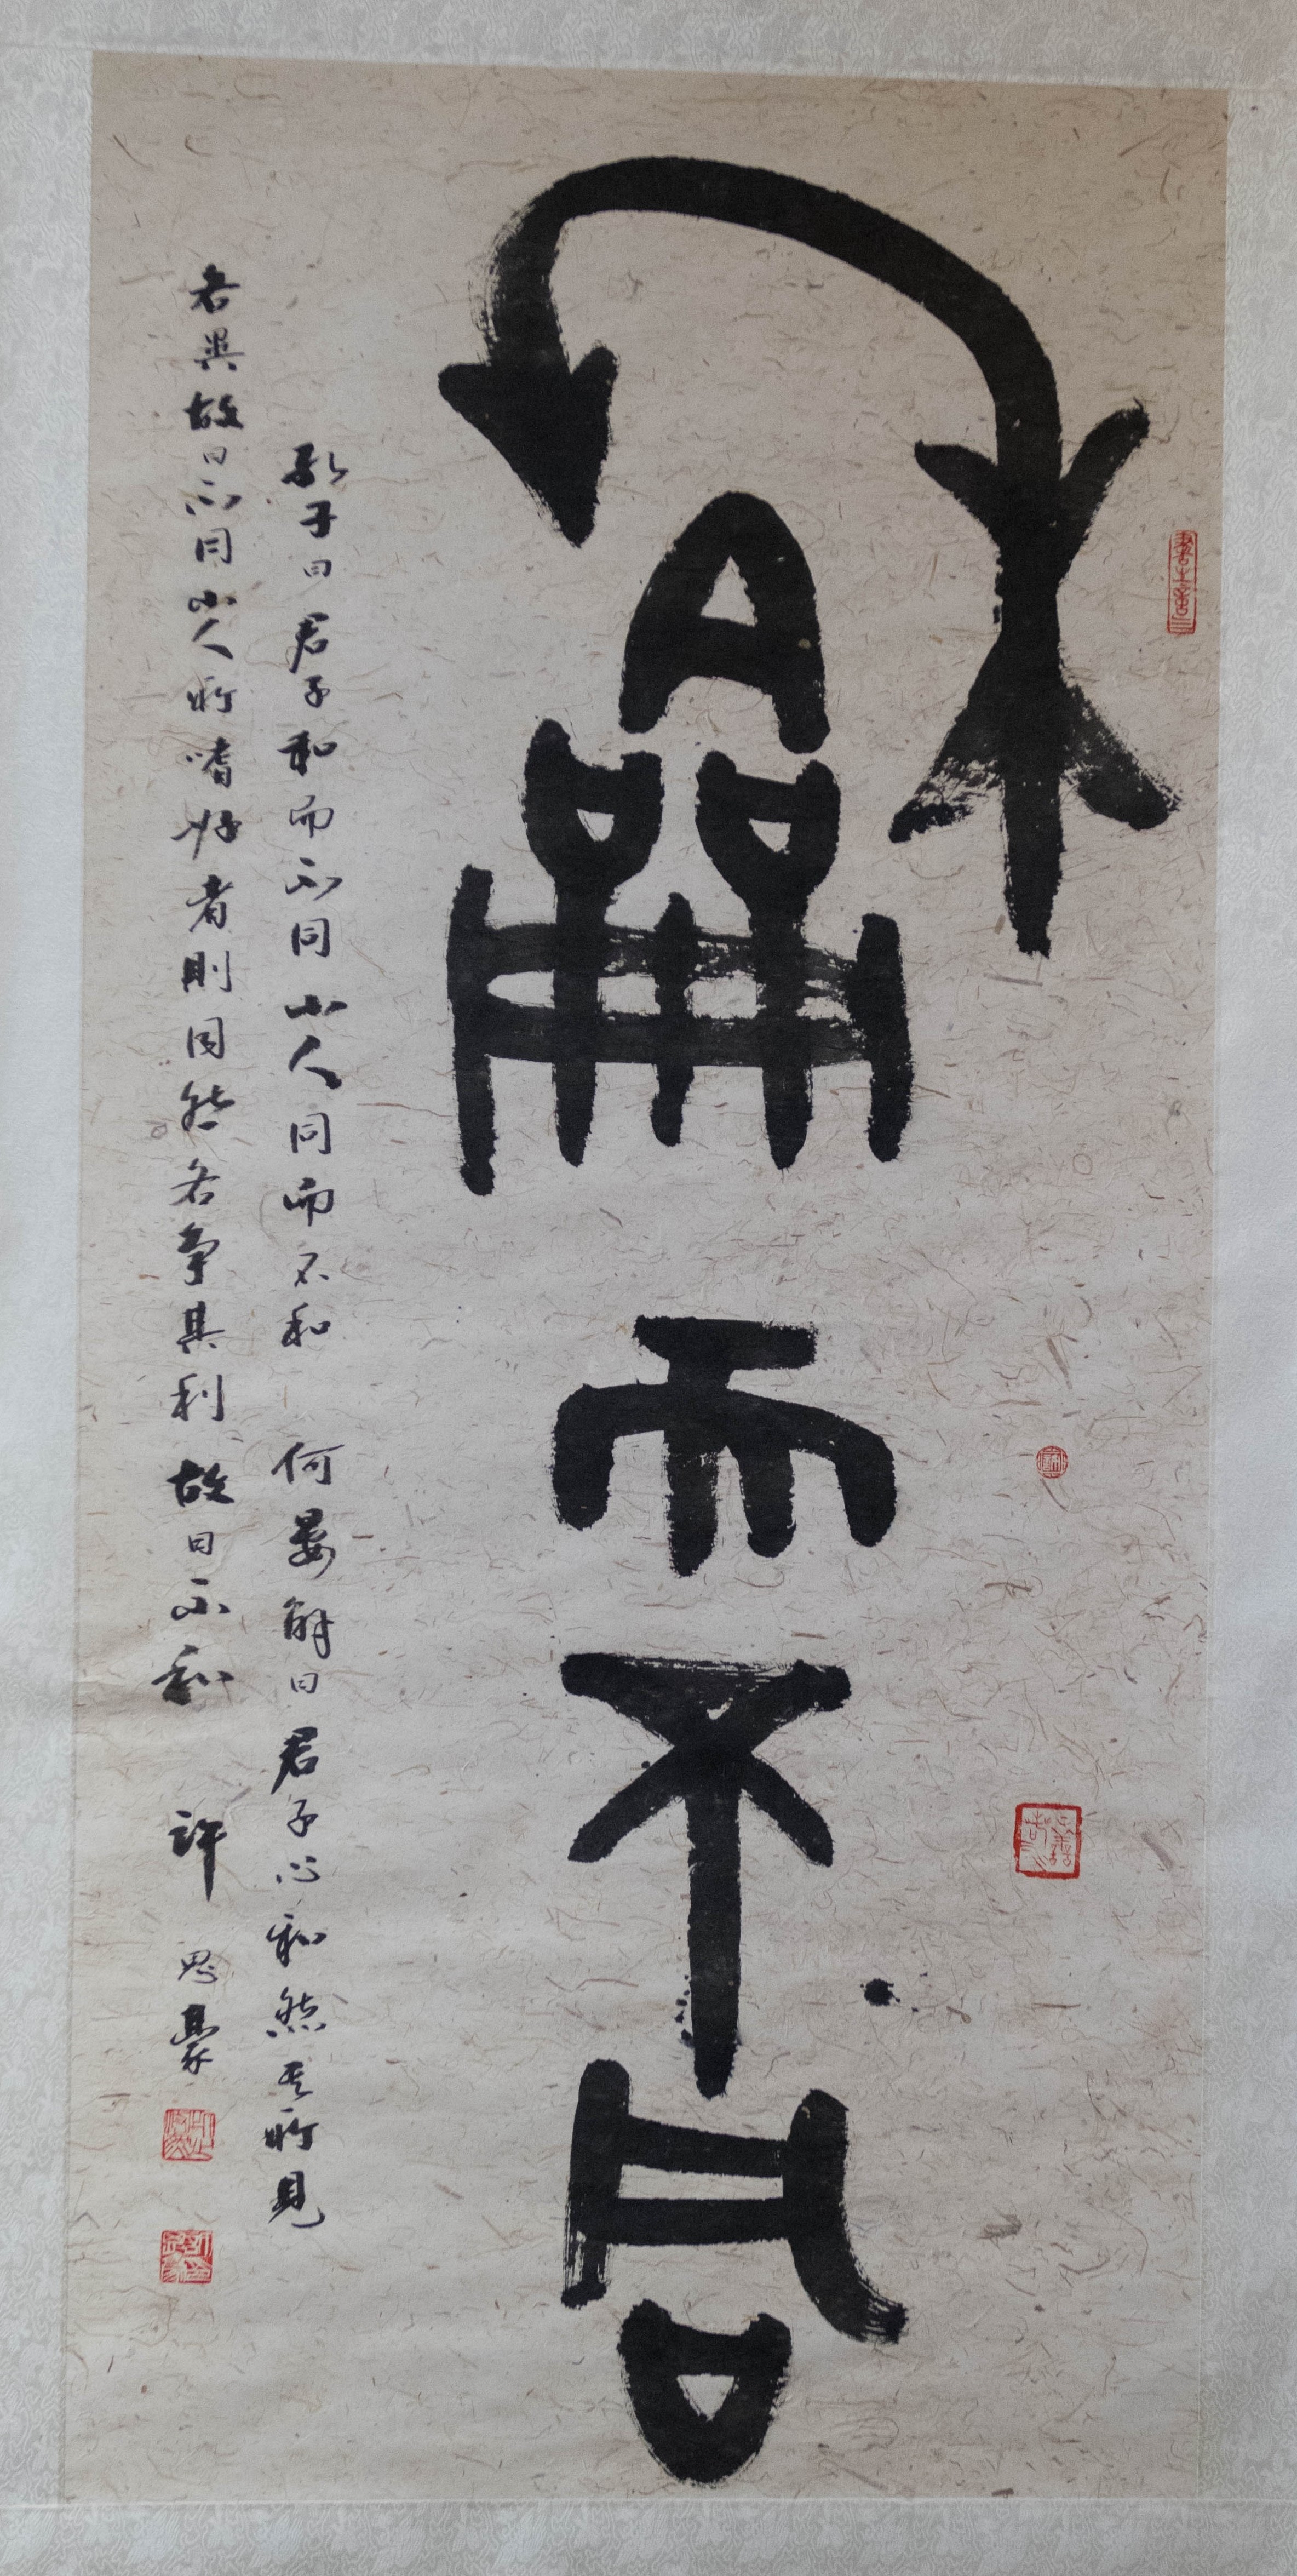 龢而不同
孔子曰君子和而不同小人同而不和 何晏解曰君子心和然其所見
各異故曰不同小人所嗜好者則同然各爭其利故曰不和 許思豪